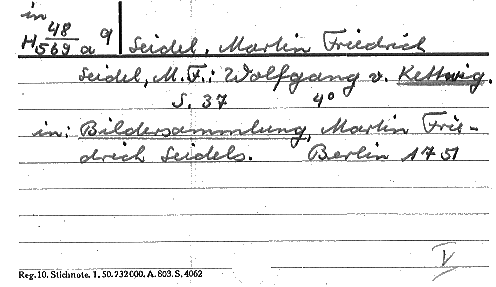 in
H 48/569 a 9 Seidel, Martin Friedrich
Seidel, M. F.: Wolfgang v. Kettwig.
S. 37 4°
in: Bildersammlung, Martin Frie-
drich Seidels. Berlin 1751
V
Reg. 10. Stichnote. 1. 50. 232000. A. 803. S. 4062